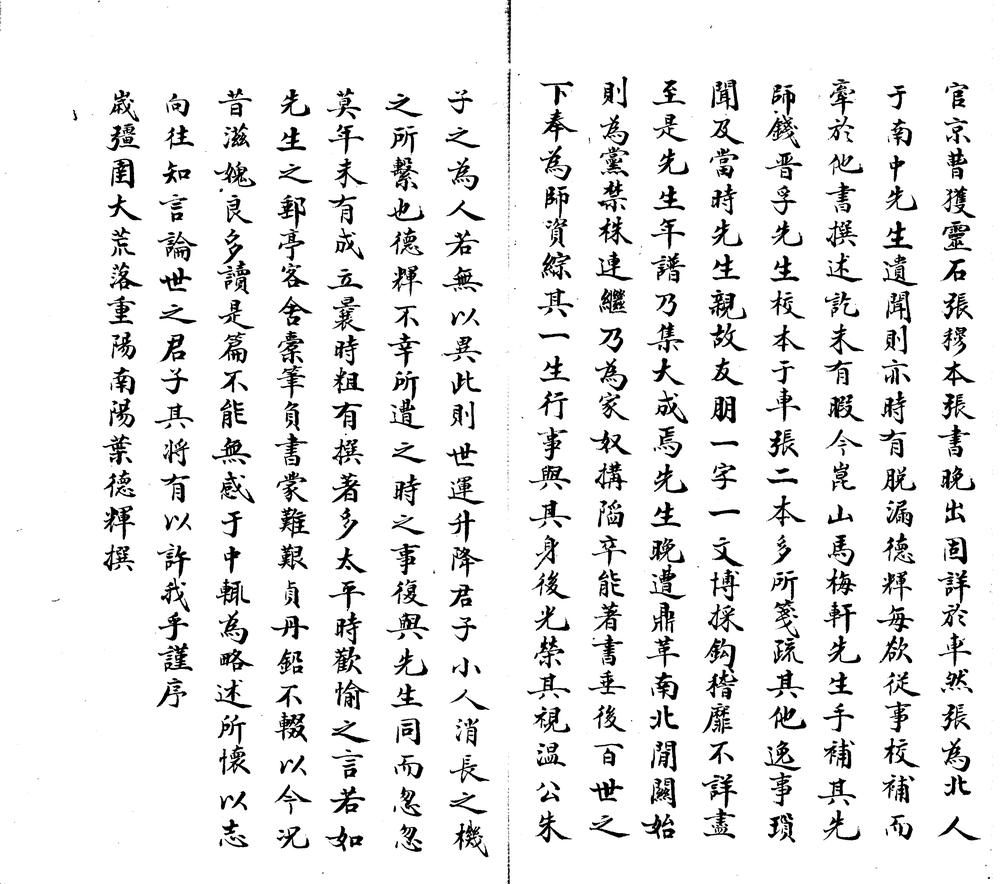 官京曹獲靈石張穆本張書晚出固詳於車然張為北人
于南中先生遺聞則亦時有脫漏德輝每欲從事校補而
牽於他書撰述訖未有暇今崑山馬梅軒先生手補其先
師錢晋孚先生校本于車張二本多所箋疏其他逸事瑣
聞及當時先生親故友朋一字一文博採鈎稽靡不詳盡
至是先生年譜乃集大成焉先生晚遭鼎革南北間關始
則為黨禁株連繼乃為家奴搆陷卒能著書垂後百世之
下奉為師資綜其一生行事與其身後光榮其視温公朱
子之為人若無以異此則世運升降君子小人消長之機
之所繫也德輝不幸所遭之時之事復與先生同而忽忽
莫年未有成立曩時粗有撰著多太平時歡愉之言若如
先生之郵亭客舍橐筆負書蒙難艱貞丹鉛不輟以今況
昔滋媿良多讀是篇不能無感于中輒為略述所懷以志
向往知言論世之君子其將有以許我乎謹序
歲彊圉大荒落重陽南陽葉德輝撰